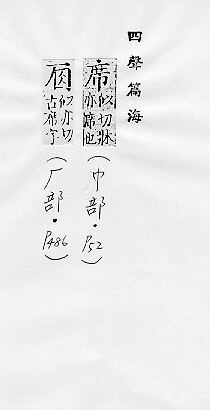 四聲篇海
席 似切牀亦席也 (巾部・P52)
似亦切古席字 (厂部・P486)